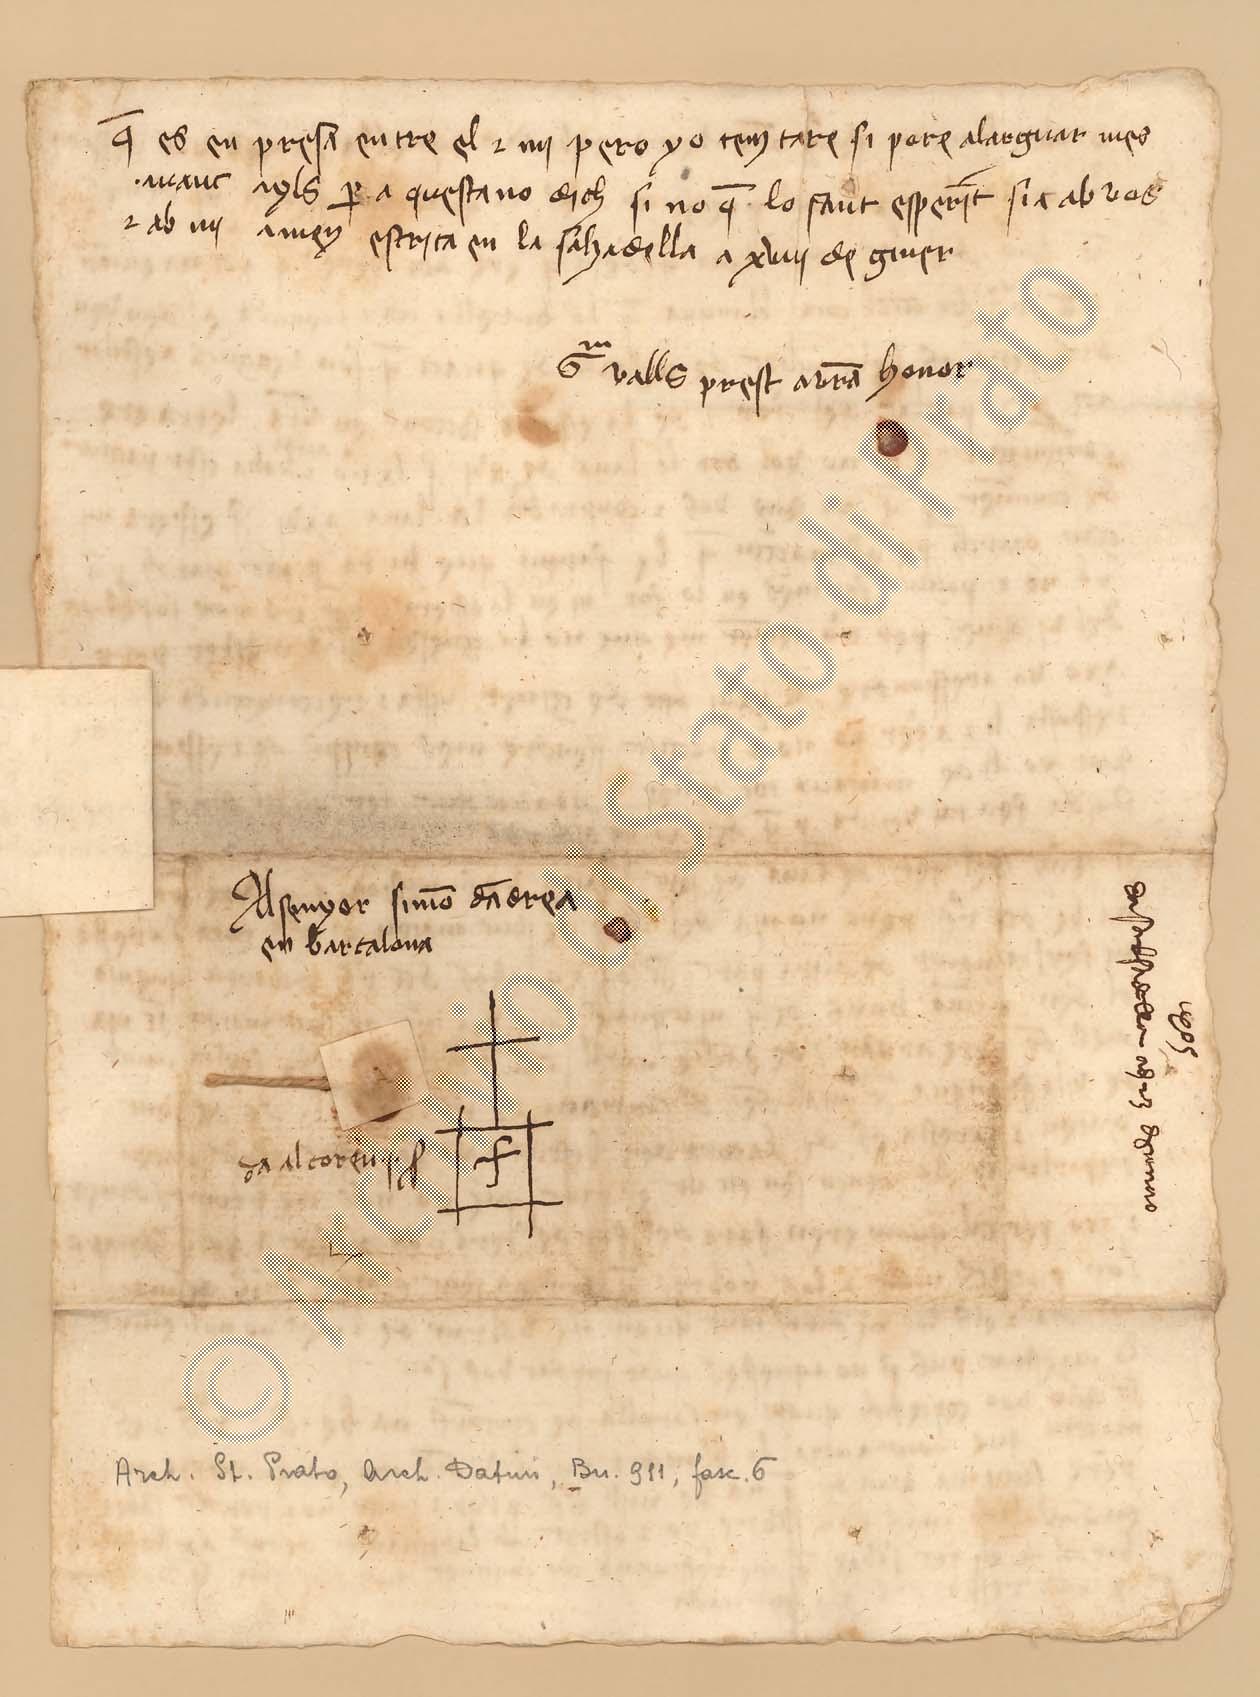 q̄ es en presā entre el ⁊ mi pero yo temtare si pore alarguar mes
avant ayls ꝑ a questa no dich si no q̄ lo sant esperīt sia ab vos
⁊ ab mi amen escrita en la salzadella a xviii de giner
Gm valls prest a vr̄a honor
Al senyor simō dādrea
en barcalona
da al coreu
1405
Arch. St. Prato, Arch. Datini, Bu. 911, fasc. 6
© Archivio di Stato di Prato